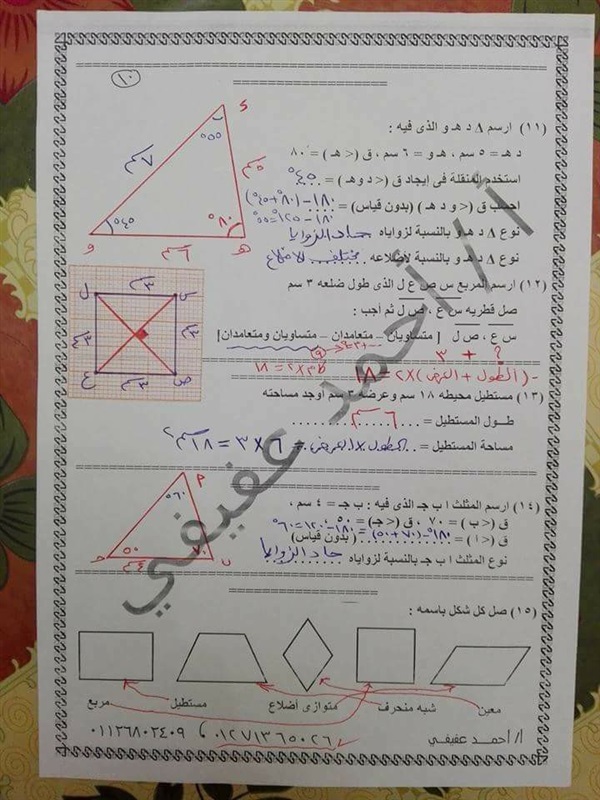 ١٠
(١١) ارسم Δ د هـ و الذى فيه :
د هـ = ٥ سم ، هـ و = ٦ سم ، ق (< هـ ) = ٨٠°
استخدم المنقلة فى إيجاد ق (< د و هـ ) = ٤٥°
احسب ق (< و د هـ ) (بدون قياس) = ١٨٠° - (٨٠° + ٤٥°)
١٨٠ - ١٢٥° = ٥٥°
نوع Δ د هـ و بالنسبة لزواياه حاد الزوايا
نوع Δ د هـ و بالنسبة لأضلاعه مختلف الأضلاع
د
٥٥°
٧سم
٥سم
٤٥°
٨٠°
و
٦سم
هـ
(١٢) ارسم المربع س ص ع ل الذى طول ضلعه ٣ سم
صل قطريه س ع ، ص ل ثم أجب :
س ع ، ص ل [ متساويان – متعامدان – متساويان ومتعامدان]
ل
٣سم
س
٣سم
٣سم
ع
٣سم
ص
٣ + ؟
(الطول + العرض) × ٢ = ١٨
(١٣) مستطيل محيطه ١٨ سم وعرضه ٣ سم أوجد مساحته
طول المستطيل = ٦سم
مساحة المستطيل = الطول × العرض = ٦ × ٣ = ١٨سم٢
(١٤) ارسم المثلث ا ب جـ الذى فيه : ب جـ = ٤ سم ،
ق (< ب ) = ٧٠ ، ق (< جـ) = ٥٠
ق (< ا ) = ١٨٠° - (٧٠ + ٥٠) (بدون قياس)
١٨٠ - ١٢٠ = ٦٠°
نوع المثلث ا ب جـ بالنسبة لزواياه حاد الزوايا
٦٠°
٥٠
٧٠
جـ
٤سم
ب
(١٥) صل كل شكل باسمه :
معين
شبه منحرف
متوازى أضلاع
مستطيل
مربع
أ/ احمـد عفيفـي
٠١٢٧١٣٦٥٠٢٦ ، ٠١١٢٦٨٠٢٤٠٩
أ / أحمد عفيفي